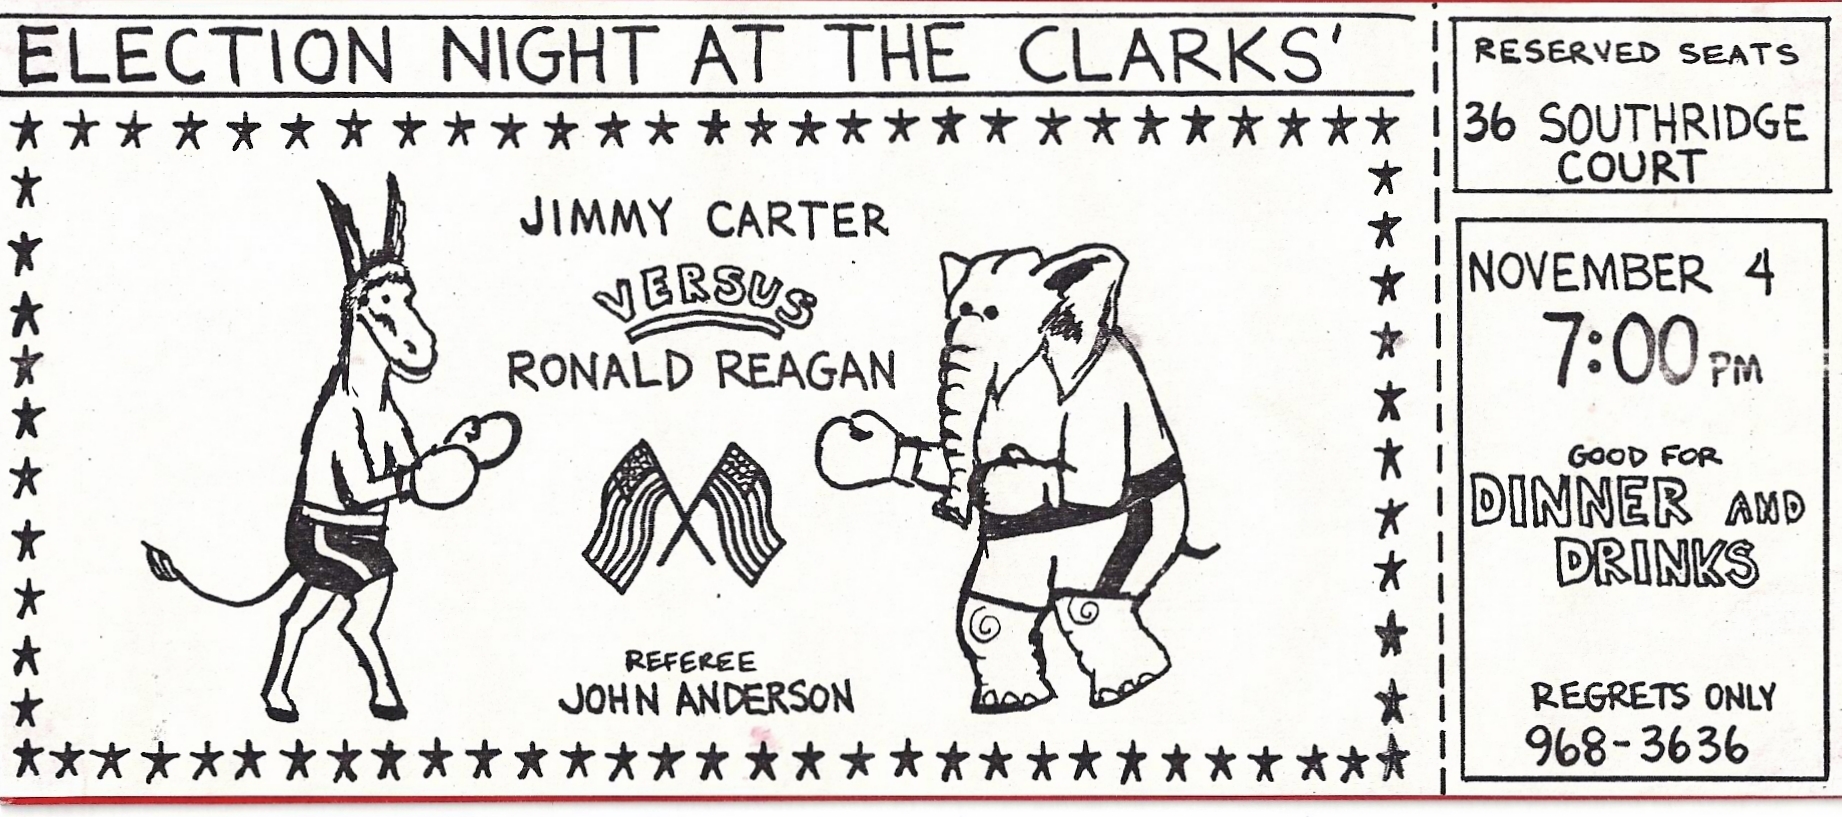 ELECTION NIGHT AT THE CLARKS'
JIMMY CARTER
VERSUS
RONALD REAGAN
REFEREE
JOHN ANDERSON
RESERVED SEATS
36 SOUTHRIDGE
COURT
NOVEMBER 4
7:00 PM
GOOD FOR
DINNER AND
DRINKS
REGRETS ONLY
968-3636